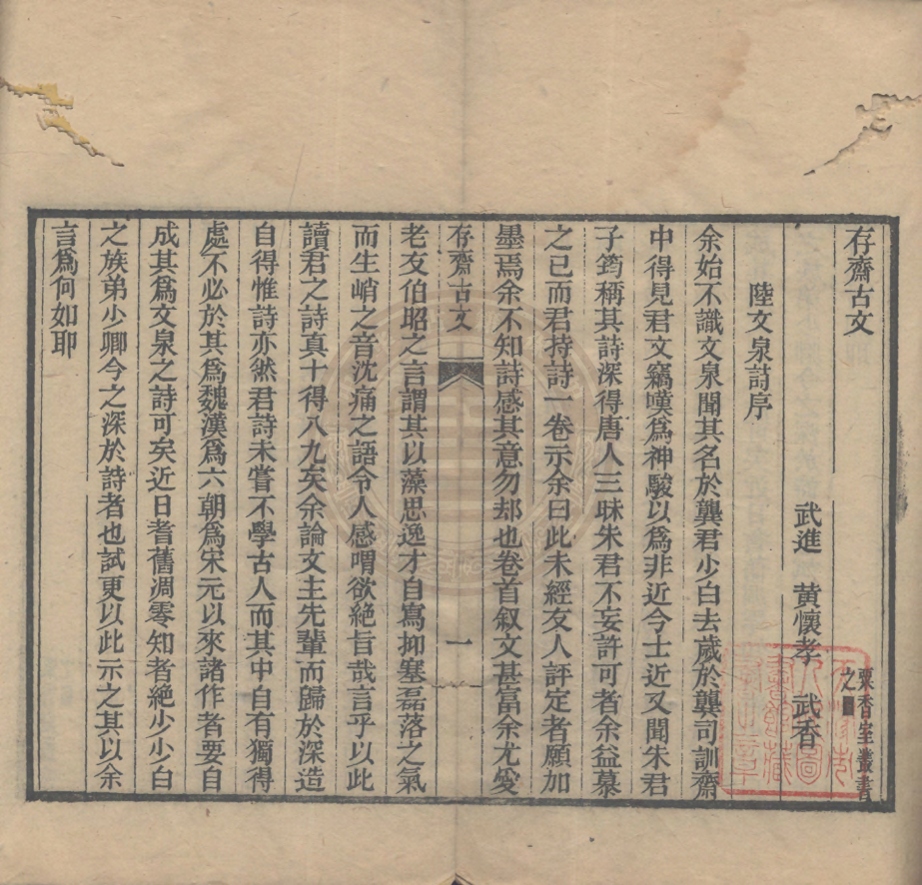 存齋古文
粟香室叢書
之
武進 黃懷孝 武香
陸文泉詩序
余始不識文泉聞其名於龔君少白去歲於龔司訓齋
中得見君文竊嘆爲神駿以爲非近今士近又聞朱君
子筠稱其詩深得唐人三昧朱君不妄許可者余益慕
之已而君持詩一卷示余曰此未經友人評定者願加
墨焉余不知詩感其意勿却也卷首叙文甚富余尤愛
存齋古文
一
老友伯昭之言謂其以藻思逸才自寫抑塞磊落之氣
而生峭之音沈痛之語令人感喟欲絕旨哉言乎以此
讀君之詩真十得八九矣余論文主先輩而歸於深造
自得惟詩亦然君詩未嘗不學古人而其中自有獨得
處不必於其爲魏漢爲六朝爲宋元以來諸作者要自
成其爲文泉之詩可矣近日耆舊凋零知者絕少少白
之族弟少卿今之深於詩者也試更以此示之其以余
言爲何如耶